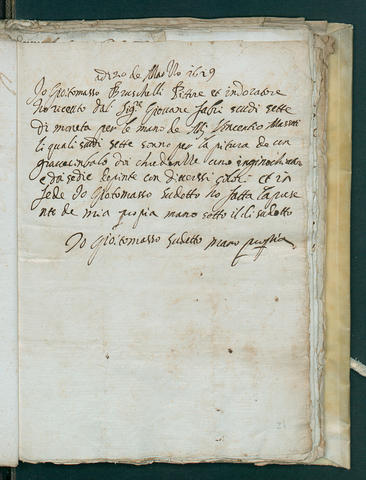 adi 20 de Marzo 1629
Io Giotomasso Bruschelli Pitore et indoratore
ho riceuto dal Sigre Giovane Fabri scudi sette
di moneta per le mano de Vincentio
li quali scudi sette sonno per la pitura de un
gravecimbalo doi uno inginochiatore
e doi sedie depinte con diverssi et in
fede Io Giotomasso sudetto ho fatta la prese
nte de mia propia mano sotto il di sudetto
Io Giotomasso sudetto mano propia